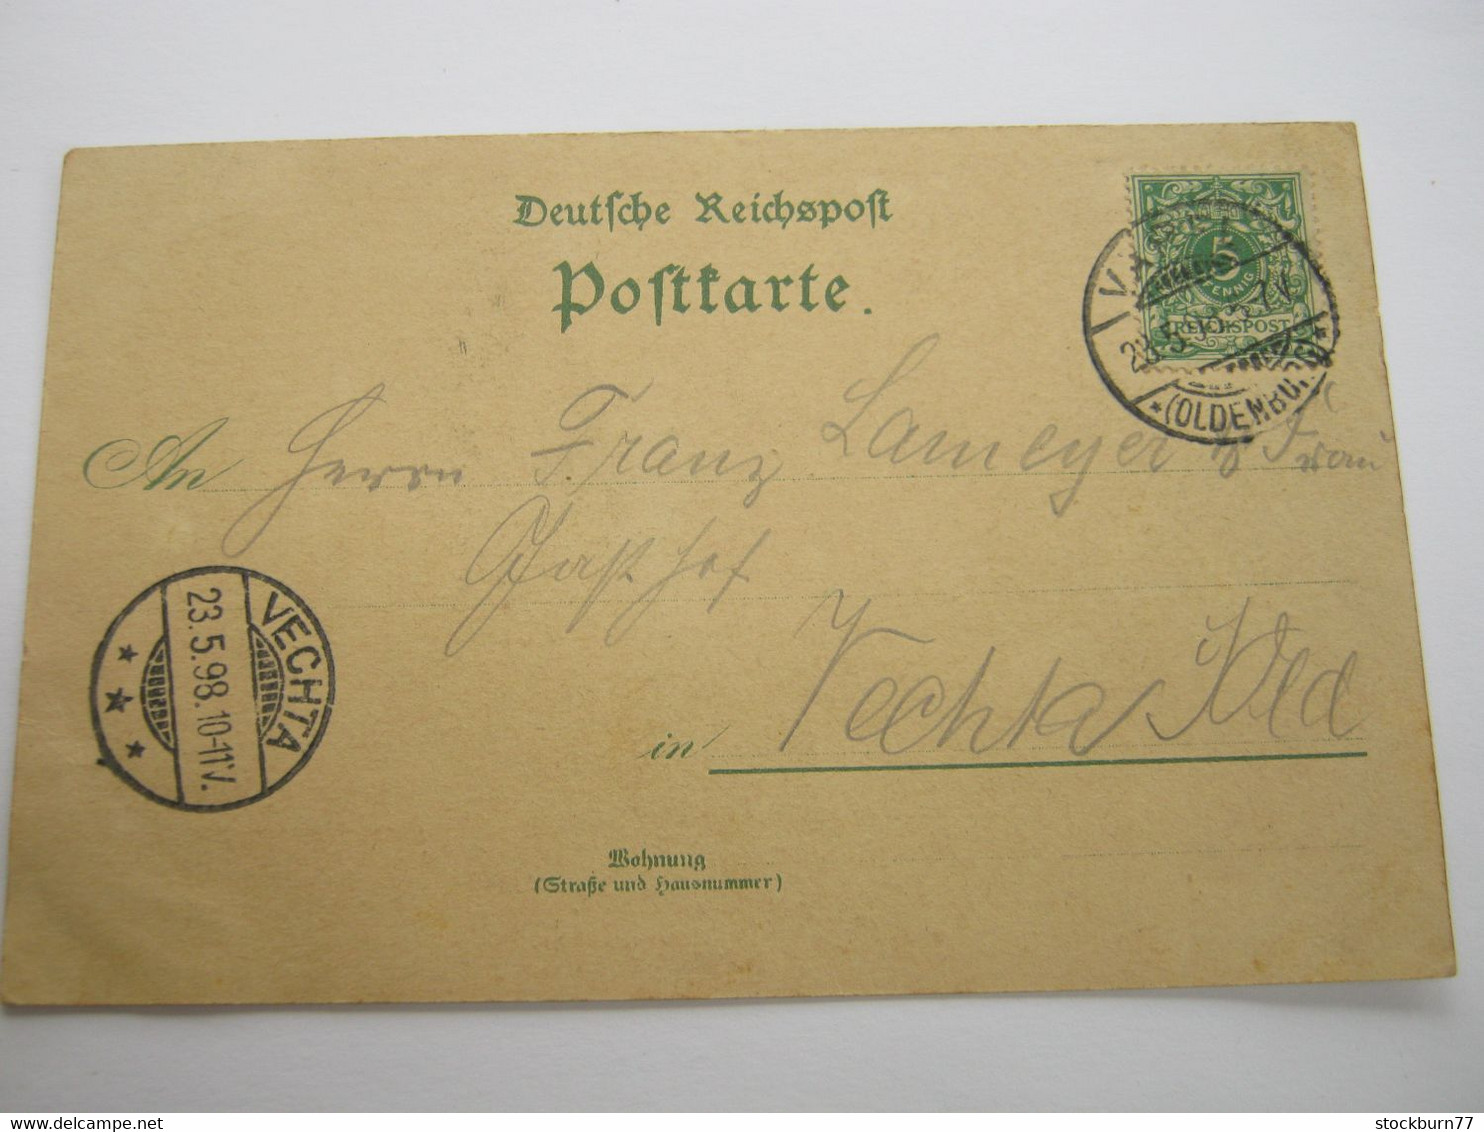 Deutsche Reichspost
Postkarte.
5
PFENNIG
REICHSPOST
VAREL
23.5.98 7V.
* (OLDENBURG) *
An Herrn Franz Lameyer & Frau
Gasthof
in Vechta
VECHTA
23.5.98.10-11V.
Wohnung
(Straße und Hausnummer)
stockburn77